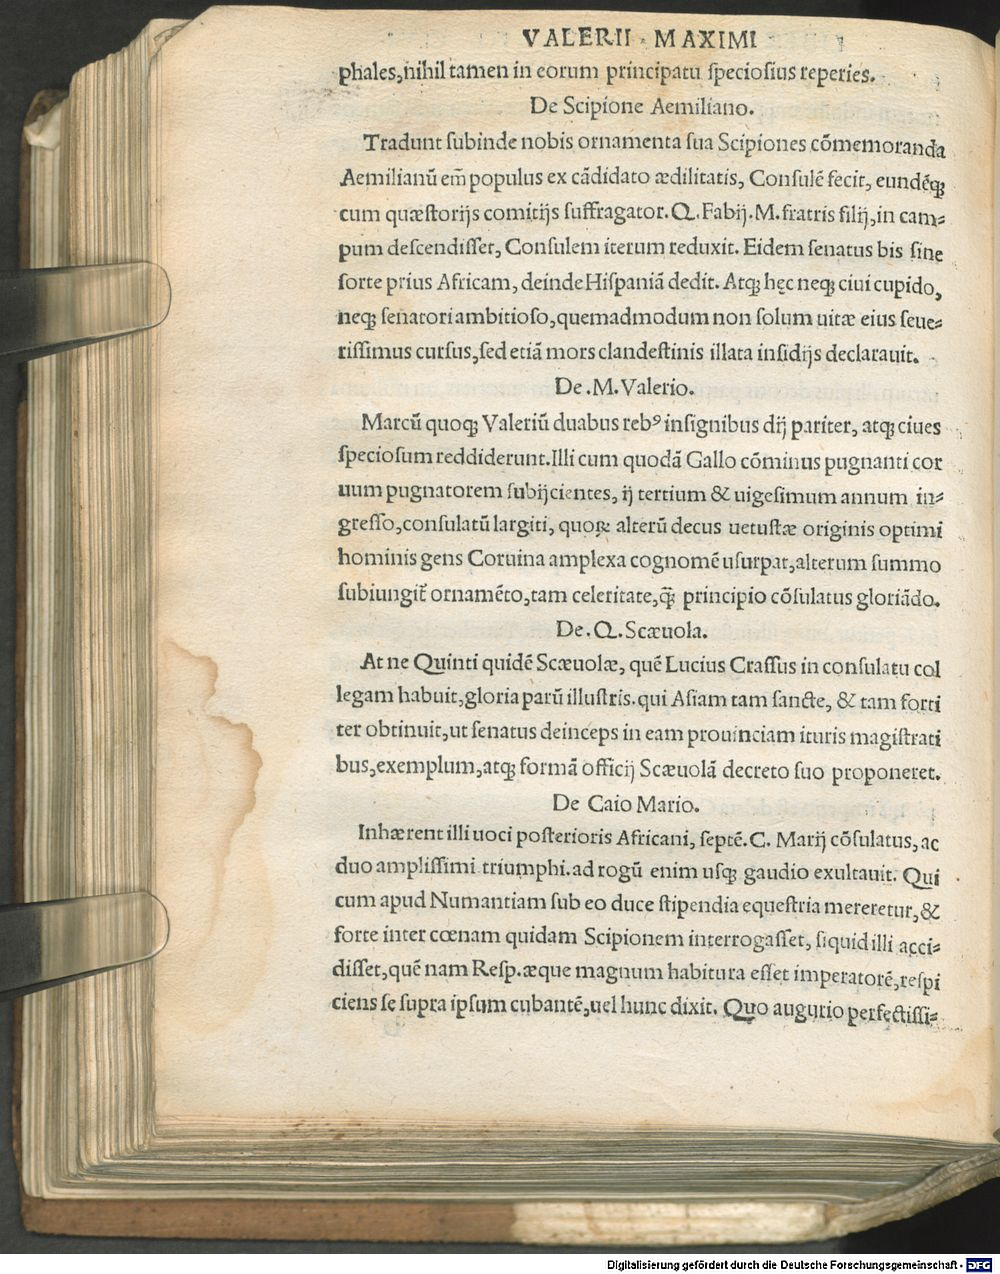 VALERII MAXIMI
phales, nihil tamen in eorum principatu ſpecioſius reperies.
De Scipione Aemiliano.
Tradunt ſubinde nobis ornamenta ſua Scipiones cõmemoranda
Aemilianũ em̃ populus ex cãdidato ædilitatis, Conſulẽ fecit, eundẽq;
cum quæſtorijs comitijs ſuffragator. Q. Fabij. M. fratris filij, in cam⸗
pum deſcendiſſet, Conſulem iterum reduxit. Eidem ſenatus bis ſine
ſorte prius Africam, deinde Hiſpaniã dedit. Atq; hęc neq; ciui cupido,
neq; ſenatori ambitioſo, quemadmodum non ſolum uitæ eius ſeue⸗
riſſimus curſus, ſed etiã mors clandeſtinis illata inſidijs declarauit.
De. M. Valerio.
Marcũ quoq; Valeriũ duabus rebꝰ inſignibus dij pariter, atq; ciues
ſpecioſum reddiderunt. Illi cum quodã Gallo cõminus pugnanti cor
uum pugnatorem ſubijcientes, ij tertium & uigeſimum annum in⸗
greſſo, conſulatũ largiti, quoꝝ alterũ decus uetuſtæ originis optimi
hominis gens Coruina amplexa cognomẽ uſurpat, alterum ſummo
ſubiungit̃ ornamẽto, tam celeritate, q̃; principio cõſulatus gloriãdo.
De. Q. Scæuola.
At ne Quinti quidẽ Scæuolæ, quẽ Lucius Craſſus in conſulatu col
legam habuit, gloria parũ illuſtris. qui Aſiam tam ſancte, & tam forti
ter obtinuit, ut ſenatus deinceps in eam prouinciam ituris magiſtrati
bus, exemplum, atq; formã officij Scæuolã decreto ſuo proponeret.
De Caio Mario.
Inhærent illi uoci poſterioris Africani, ſeptẽ. C. Marij cõſulatus, ac
duo ampliſſimi triumphi. ad rogũ enim uſq; gaudio exultauit. Qui
cum apud Numantiam ſub eo duce ſtipendia equeſtria mereretur, &
forte inter cœnam quidam Scipionem interrogaſſet, ſi quid illi acci⸗
diſſet, quẽ nam Reſp. æque magnum habitura eſſet imperatorẽ, reſpi
ciens ſe ſupra ipſum cubantẽ, uel hunc dixit. Quo augurio perfectiſſi⸗
Digitalisierung gefördert durch die Deutsche Forschungsgemeinschaft - DFG